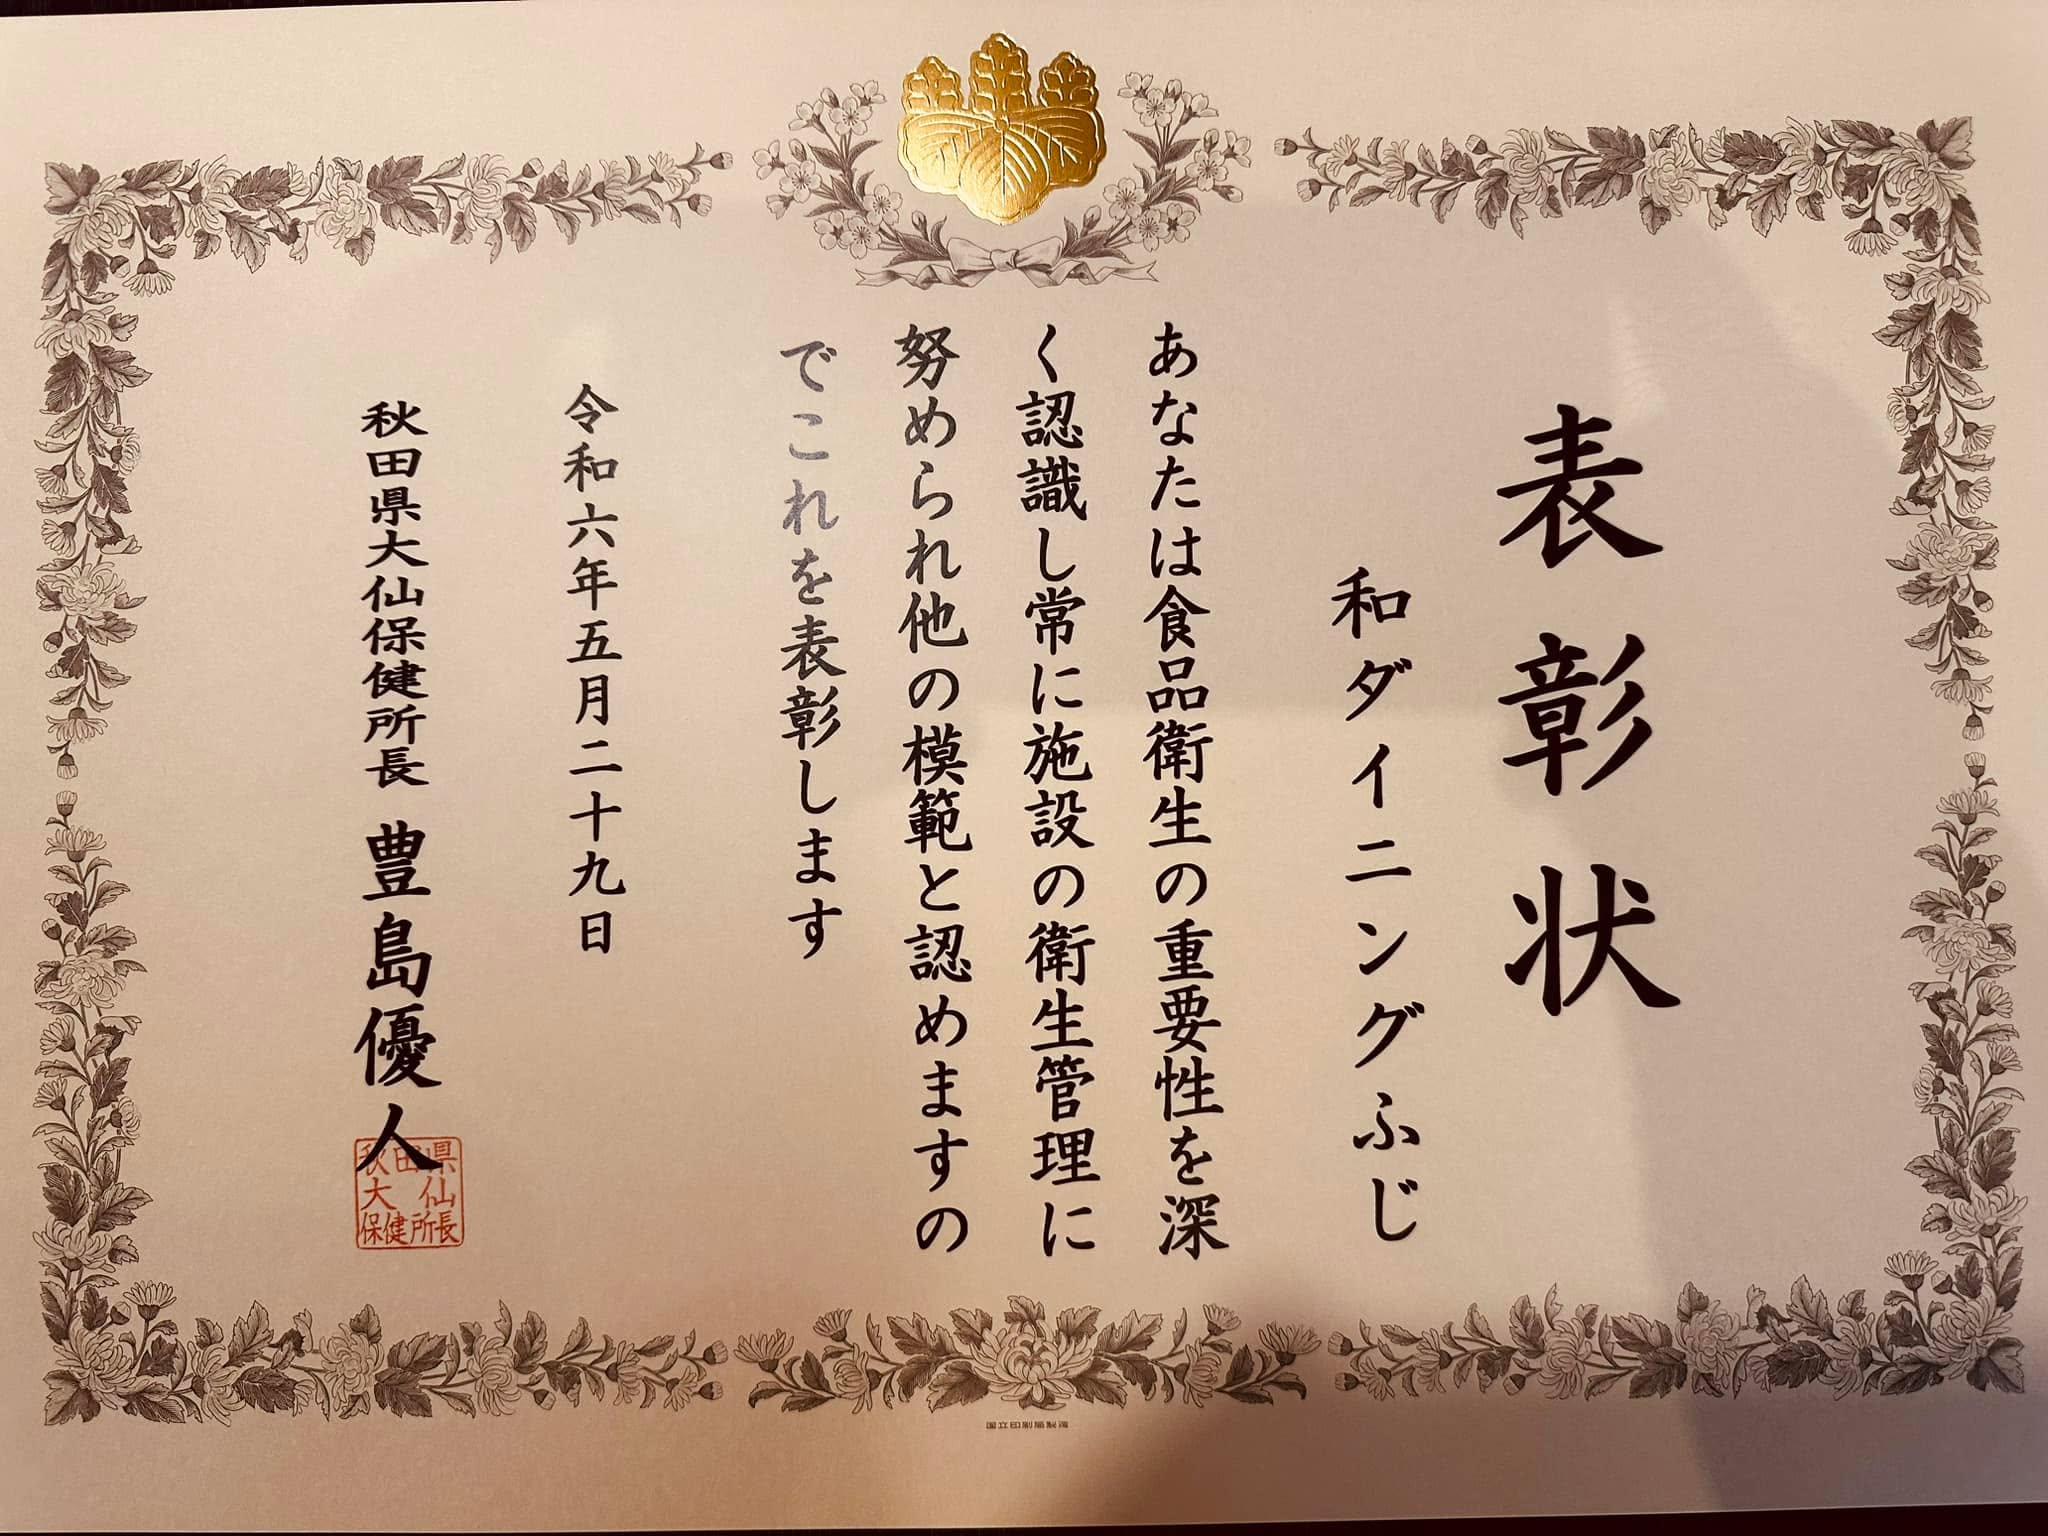 表彰状
和ダイニングふじ
あなたは食品衛生の重要性を深
く認識し常に施設の衛生管理に
努められ他の模範と認めますの
でこれを表彰します
令和六年五月二十九日
秋田県大仙保健所長 豊島優人
秋田県
大仙
保健所長